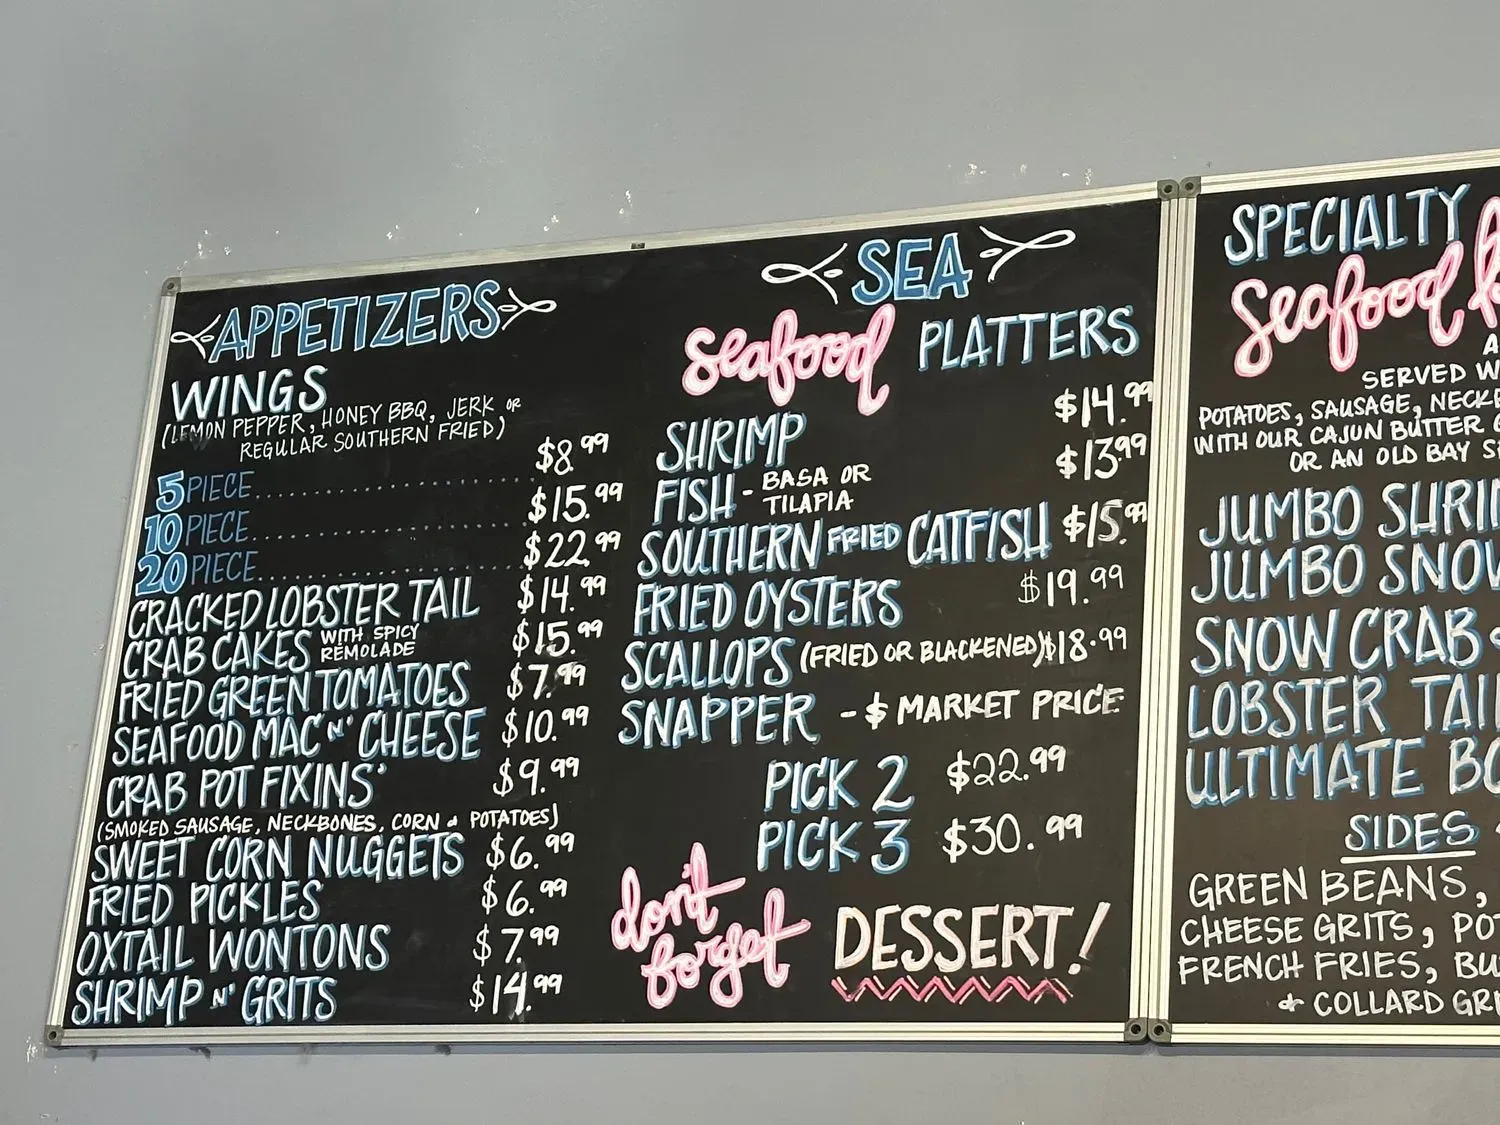 APPETIZERS
WINGS
(LEMON PEPPER, HONEY BBQ, JERK OR
REGULAR SOUTHERN FRIED)
5 PIECE.............................. $8.99
10 PIECE............................. $15.99
20 PIECE............................. $22.99
CRACKED LOBSTER TAIL $14.99
CRAB CAKES WITH SPICY REMOLADE $15.99
FRIED GREEN TOMATOES $7.99
SEAFOOD MAC N' CHEESE $10.99
CRAB POT FIXINS' $9.99
(SMOKED SAUSAGE, NECKBONES, CORN & POTATOES)
SWEET CORN NUGGETS $6.99
FRIED PICKLES $6.99
OXTAIL WONTONS $7.99
SHRIMP N' GRITS $14.99
SEA
Seafood PLATTERS
SHRIMP $14.99
FISH - BASA OR TILAPIA $13.99
SOUTHERN FRIED CATFISH $15.99
FRIED OYSTERS $19.99
SCALLOPS (FRIED OR BLACKENED) $18.99
SNAPPER - $ MARKET PRICE
PICK 2 $22.99
PICK 3 $30.99
don't forget DESSERT!
SPECIALTY
Seafood
SERVED
POTATOES, SAUSAGE,
WITH OUR CAJUN BUTTER
OR AN OLD BAY
JUMBO
JUMBO
SNOW CRAB
LOBSTER
ULTIMATE
SIDES
GREEN BEANS,
CHEESE GRITS,
FRENCH FRIES,
& COLLARD